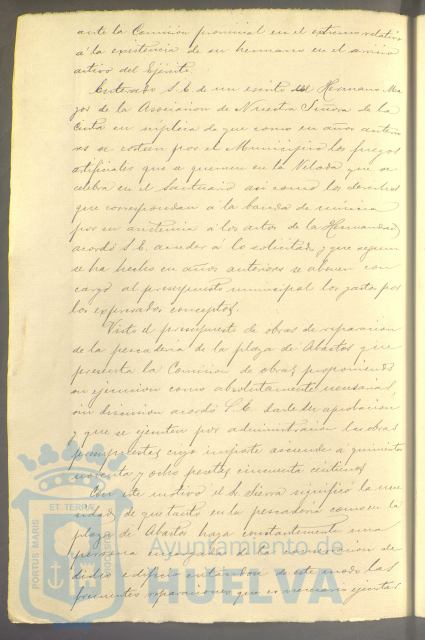 ante la Comisión provincial en el extremo relativo
á la existencia de su hermano en el servicio
activo del Ejército.
Enterado S.E. de un escrito del Hermano Ma-
yor de la Asociacion de Nuestra Señora de la
Cinta en súplica de que como en años anterio-
res se costeen por el Municipio los fuegos
artificiales que se quemen en la Velada que se
celebra en el Santuario asi como los derechos
que correspondan á la banda de música
por su asistencia á los actos de la Hermandad,
acordó S.E. acceder á lo solicitado y que segun
se ha hecho en años anteriores se abonen con
cargo al presupuesto municipal los gastos por
los expresados conceptos.
Visto el presupuesto de obras de reparacion
de la pescaderia de la plaza de Abastos que
presenta la Comision de obras proponiendo
su ejecucion como absolutamente necesarias,
sin discusion acordó S.E. darle su aprobacion
y que se ejecuten por administracion las obras
propuestas cuyo importe asciende a quinientas
noventa y ocho pesetas cincuenta centimos.
Con este motivo el Sr. Sierra significó la nece-
sidad de que tanto en la pescaderia como en la
plaza de Abastos haya constantemente una
persona encargada de la conservacion de
dicho edificio evitandose de este modo las
frecuentes reparaciones que es necesario ejecutar
PORTUS MARIS
ET TERRÆ
Ayuntamiento de
HUELVA